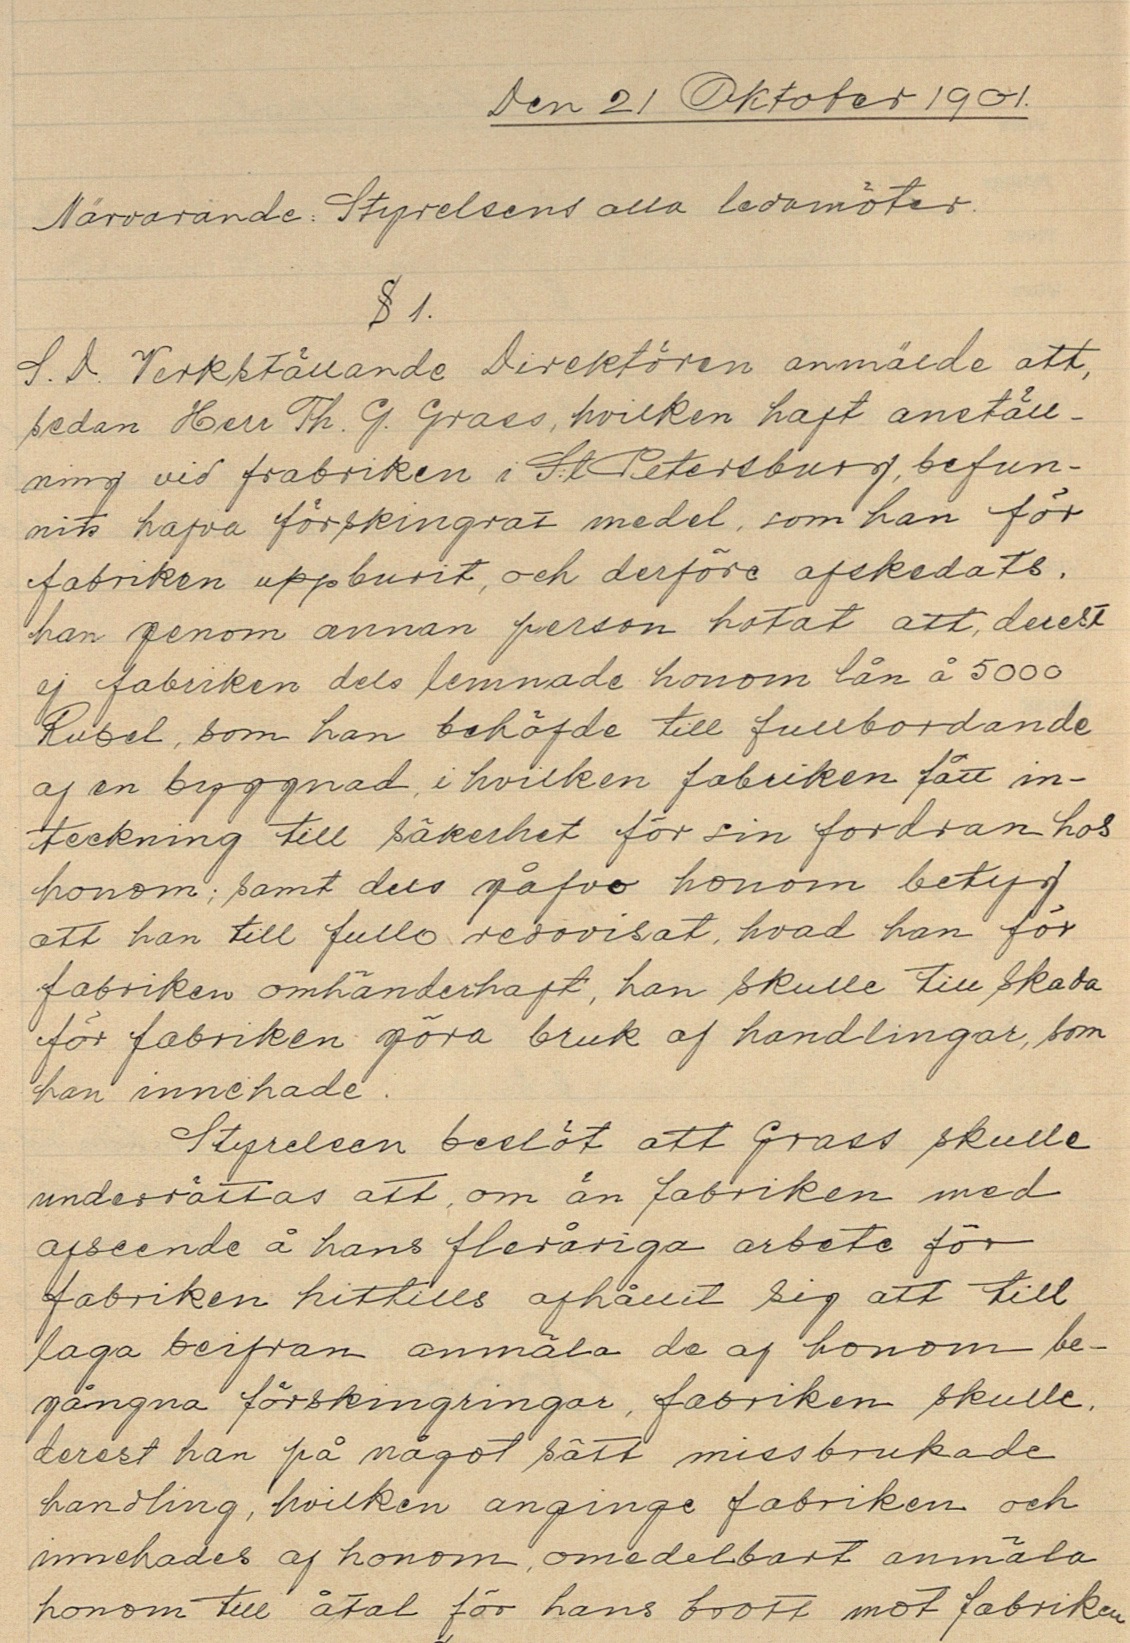 Den 21 Oktober 1901.
Närvarande: Styrelsens alla ledamöter.
§ 1.
S. D. Verkställande Direktören anmälde att,
sedan Herr Th. G. Grass, hvilken haft anställ-
ning vid frabriken i S:t Petersburg, befun-
nits hafva förskingrat medel, som han för
fabriken uppburit, och derföre afskedats,
han genom annan person hotat att, derest
ej fabriken dels lemnade honom lån å 5000
Rubel, som han behöfde till fullbordande
af en byggnad, i hvilken fabriken fått in-
teckning till säkerhet för sin fordran hos
honom; samt dels gåfve honom betyg
att han till fullo redovisat, hvad han för
fabriken omhänderhaft, han skulle till skada
för fabriken göra bruk af handlingar, som
han innehade.
Styrelsen beslöt att Grass skulle
underrättas att, om än fabriken med
afseende å hans fleråriga arbete för
fabriken hittills afhållit sig att till
laga beifran anmäla de af honom be-
gångna förskingringar, fabriken skulle,
derest han på något sätt missbrukade
handling, hvilken anginge fabriken och
innehades af honom, omedelbart anmäla
honom till åtal för hans brott mot fabriken